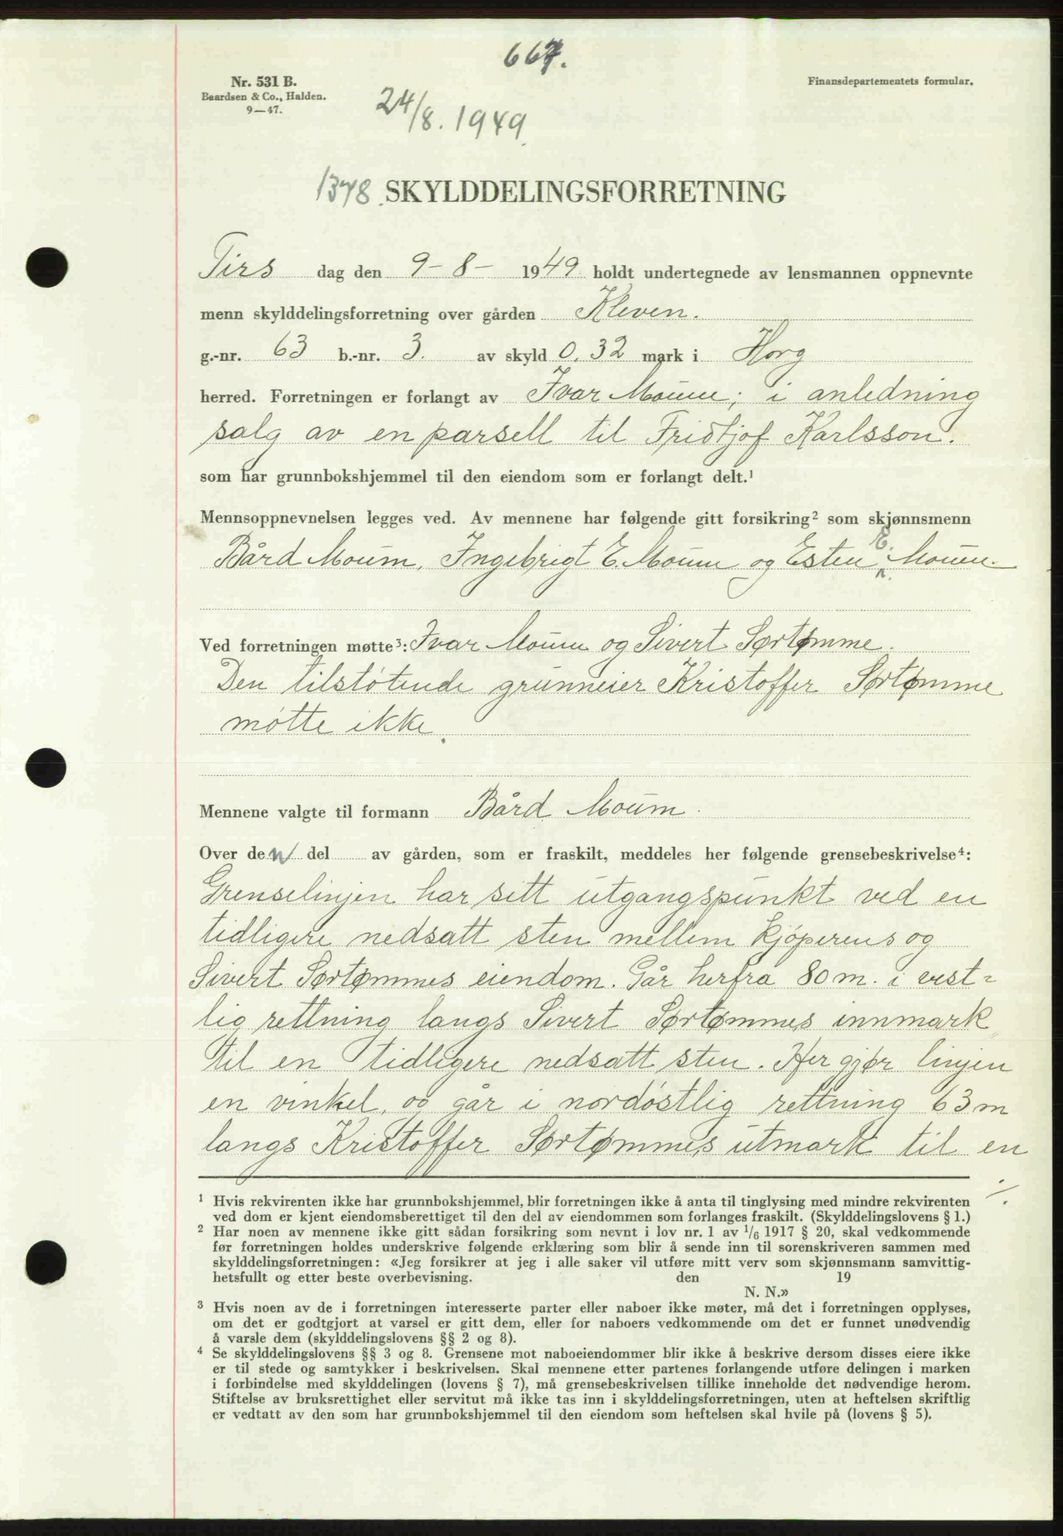 667.
Nr. 531 B.
Baardsen & Co., Halden.
9—47.
Finansdepartementets formular.
24/8. 1949
1378. SKYLDDELINGSFORRETNING
Tirs dag den 9-8- 1949 holdt undertegnede av lensmannen oppnevnte
menn skylddelingsforretning over gården Kleven.
g.-nr. 63 b.-nr. 3. av skyld 0,32 mark i Horg
herred. Forretningen er forlangt av Ivar Moum; i anledning
salg av en parsell til Fridtjof Karlsson.
som har grunnbokshjemmel til den eiendom som er forlangt delt.¹
Mennsoppnevnelsen legges ved. Av mennene har følgende gitt forsikring² som skjønnsmenn
Bård Moum, Ingebrigt E. Moum og Esten E. Moum.
Ved forretningen møtte³: Ivar Moum og Sivert Sørtømme.
Den tilstøtende grunneier Kristoffer Sørtømme
møtte ikke.
Mennene valgte til formann Bård Moum.
Over den del av gården, som er fraskilt, meddeles her følgende grensebeskrivelse⁴:
Grenselinjen har sitt utgangspunkt ved en
tidligere nedsatt sten mellem kjøperens og
Sivert Sørtømmes eiendom. Går herfra 80 m. i vest-
lig rettning langs Sivert Sørtømmes innmark
til en tidligere nedsatt sten. Her gjør linjen
en vinkel, og går i nordøstlig rettning 63 m
langs Kristoffer Sørtømmes utmark til en
./.
¹ Hvis rekvirenten ikke har grunnbokshjemmel, blir forretningen ikke å anta til tinglysing med mindre rekvirenten
ved dom er kjent eiendomsberettiget til den del av eiendommen som forlanges fraskilt. (Skylddelingslovens § 1.)
² Har noen av mennene ikke gitt sådan forsikring som nevnt i lov nr. 1 av 1/6 1917 § 20, skal vedkommende
før forretningen holdes underskrive følgende erklæring som blir å sende inn til sorenskriveren sammen med
skylddelingsforretningen: «Jeg forsikrer at jeg i alle saker vil utføre mitt verv som skjønnsmann samvittig-
hetsfullt og etter beste overbevisning. den 19
N. N.»
³ Hvis noen av de i forretningen interesserte parter eller naboer ikke møter, må det i forretningen opplyses,
om det er godtgjort at varsel er gitt dem, eller for naboers vedkommende om det er funnet unødvendig
å varsle dem (skylddelingslovens §§ 2 og 8).
⁴ Se skylddelingslovens §§ 3 og 8. Grensene mot naboeiendommer blir ikke å beskrive dersom disses eiere ikke
er til stede og samtykker i beskrivelsen. Skal mennene etter partenes forlangende utføre delingen i marken
i forbindelse med skylddelingen (lovens § 7), må grensebeskrivelsen tillike inneholde det nødvendige herom.
Stiftelse av bruksrettighet eller servitut må ikke tas inn i skylddelingsforretningen, uten at heftelsen skriftlig
er vedtatt av den som har grunnbokshjemmel til den eiendom som heftelsen skal hvile på (lovens § 5).